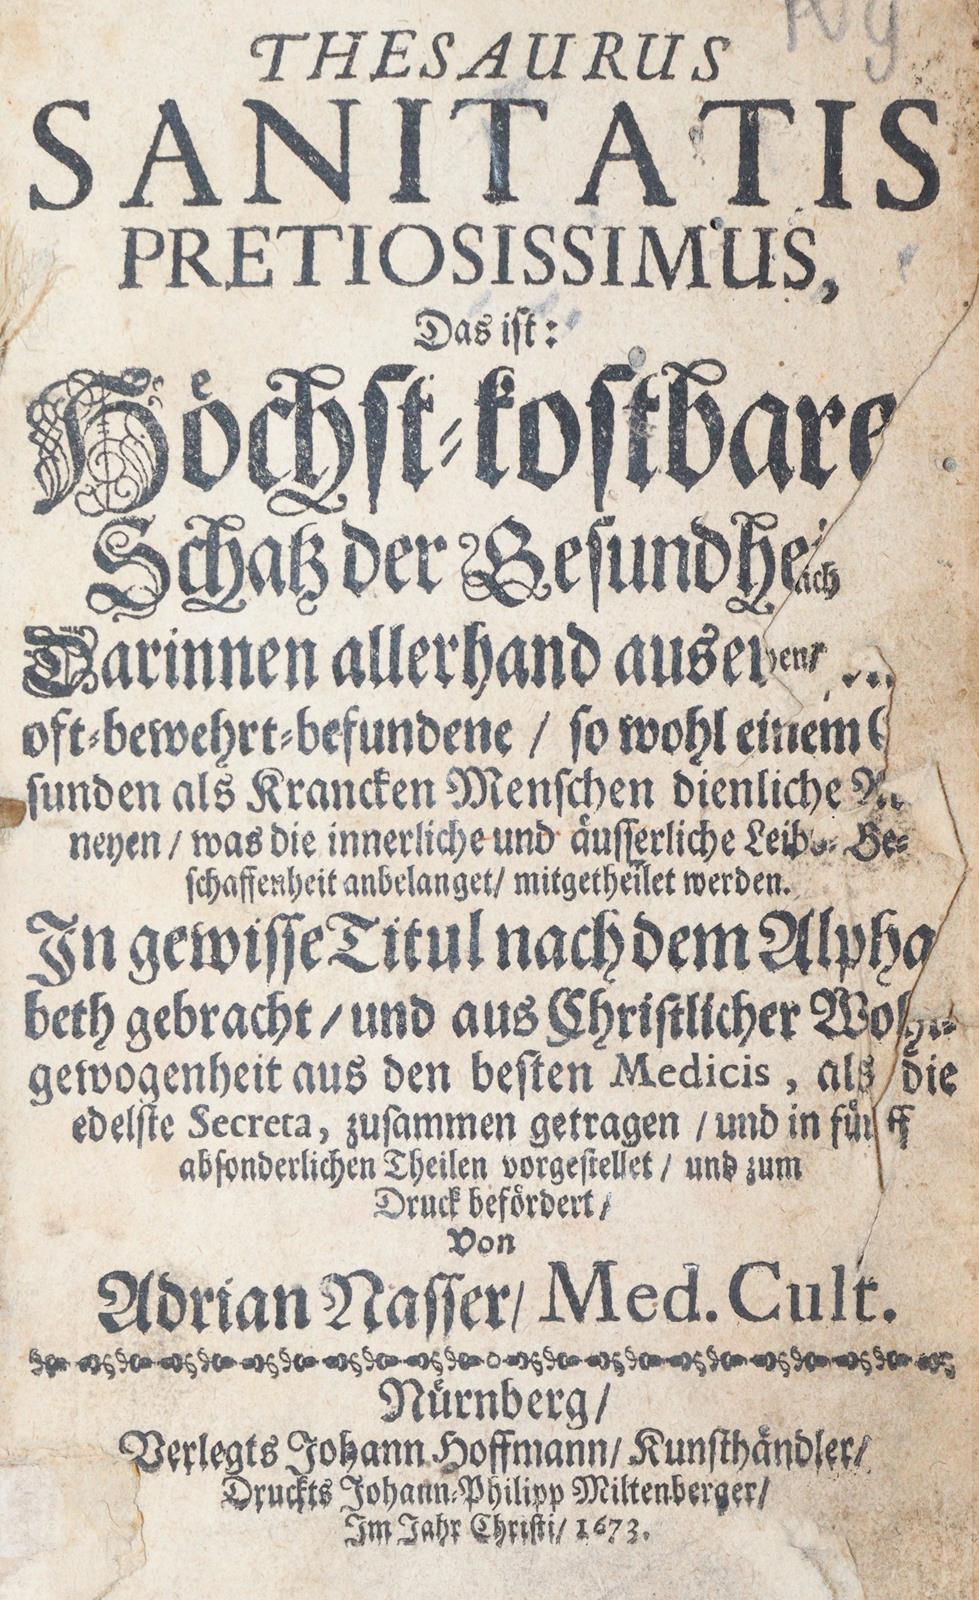 THESAURUS
SANITATIS
PRETIOSISSIMUS,
Das ist:
Hoͤchst-kostbare
Schatz der Gesundhei
Darinnen allerhand auser
oft-bewehrt-befundene / so wohl einem
sunden als Krancken Menschen dienliche
neyen / was die innerliche und äusserliche Leibs- Be-
schaffenheit anbelanget/ mitgetheilet werden.
In gewisse Titul nach dem Alpha
beth gebracht / und aus Christlicher Wohl-
gewogenheit aus den besten Medicis, als die
edelste Secreta, zusammen getragen / und in fünff
absonderlichen Theilen vorgestellet / und zum
Druck befördert /
Von
Adrian Nasser/ Med. Cult.
Nürnberg /
Verlegts Johann Hoffmann/ Kunsthändler/
Druckts Johann-Philipp Miltenberger/
Im Jahr Christi/ 1673.